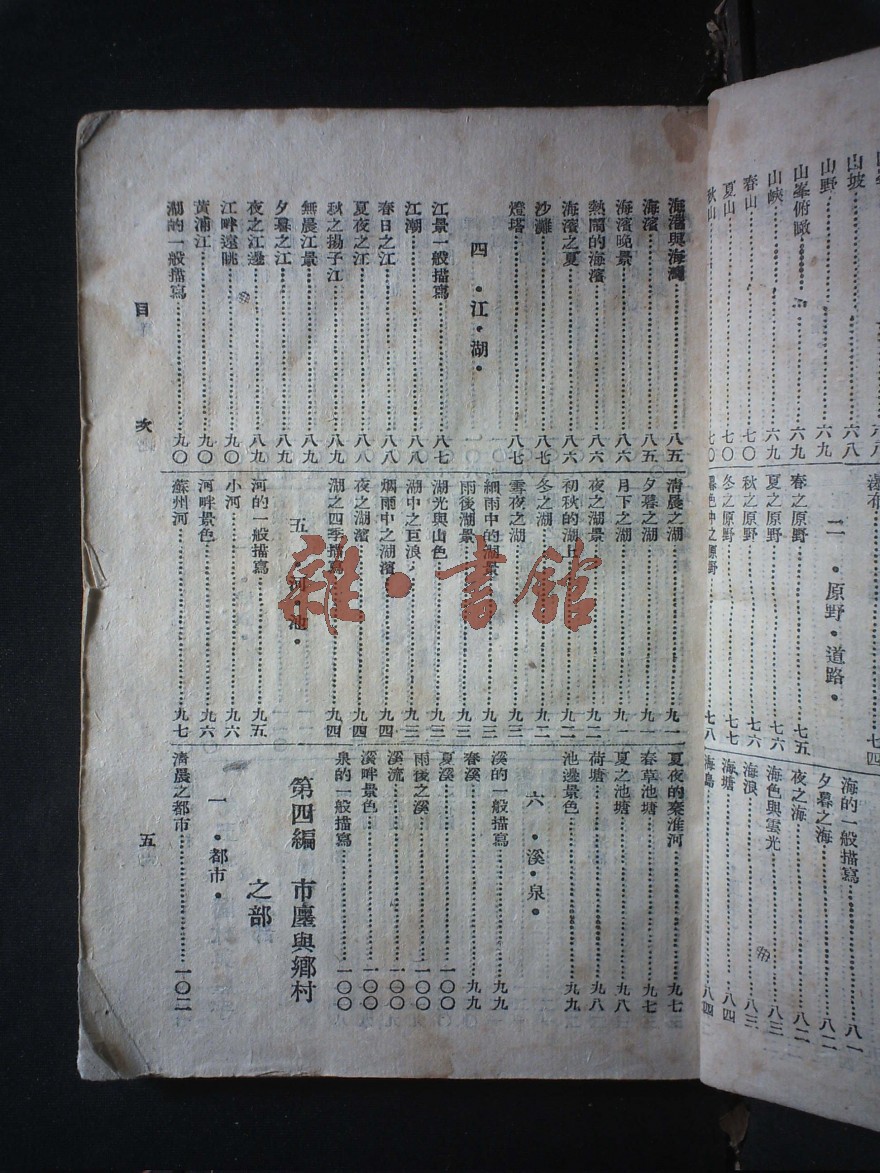 山坡……六八
山野……六九
山峯俯瞰……六九
山峽……六九
春山……七〇
夏山……七〇
秋山……七〇
瀑布……七四
二・原野・道路・
春之原野……七五
夏之原野……七六
秋之原野……七六
冬之原野……七七
暮色中之原野……七八
海的一般描寫……八一
夕暮之海……八二
夜之海……八二
海色與雲光……八三
海浪……八三
海塘……八四
海島……八四
海灘與海灣……八五
海濱……八五
海濱晚景……八六
熱鬧的海濱……八六
海濱之夏……八六
沙灘……八七
燈塔……八七
四・江・湖・
江景一般描寫……八七
江潮……八八
春日之江……八八
夏夜之江……八八
秋之揚子江……八九
無晨江景……八九
夕暮之江……八九
夜之江邊……八九
江畔遠眺……九〇
黃浦江……九〇
湖的一般描寫……九〇
清晨之湖……九一
夕暮之湖……九一
月下之湖……九一
夜之湖景……九二
初秋的湖上……九二
冬之湖……九二
雪夜之湖……九三
細雨中的湖景……九三
雨後湖景……九三
湖光與山色……九三
湖中之巨浪……九三
烟雨中之湖濱……九四
夜之湖濱……九四
湖之四季描寫……九四
五・河・池・
河的一般描寫……九五
小河……九六
河畔景色……九六
蘇州河……九七
夏夜的秦淮河……九七
春草池塘……九七
夏之池塘……九八
荷塘……九八
池邊景色……九九
六・溪・泉・
溪的一般描寫……九九
春溪……九九
夏溪……一〇〇
雨後之溪……一〇〇
溪流……一〇〇
溪畔景色……一〇〇
泉的一般描寫……一〇〇
第四編 市廛與鄉村
之部
一・都市・
清晨之都市……一〇二
目 次 五
雜・書館